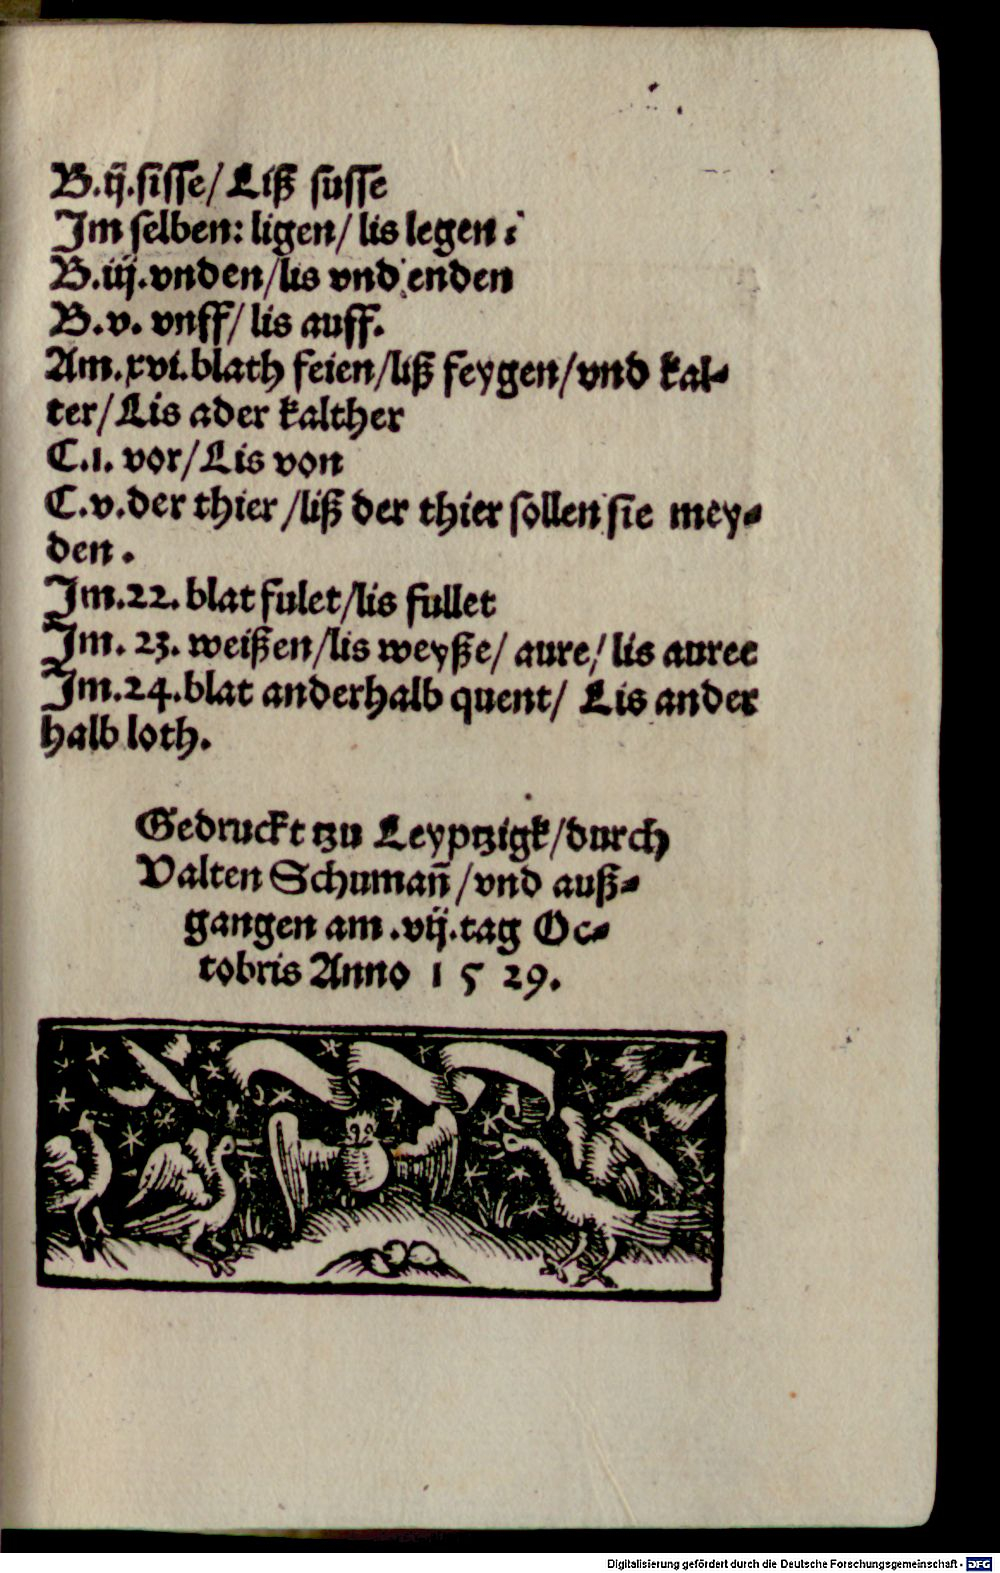 B.ij.sisse/ Liß susse
Im selben: ligen/ lis legen :
B.iij.vnden/lis vnd enden
B.v. vnff/ lis auff.
Am.xvi.blath feien/liß feygen/vnd kal-
ter/ Lis ader kalther
C.i. vor/ Lis von
C.v.der thier /liß der thier sollen sie mey-
den.
Im.22. blat fulet/lis fullet
Im. 23. weißen/lis weyße/ aure/ lis auree
Im.24.blat anderhalb quent/ Lis ander
halb loth.
Gedruckt tzu Leyptzigk/durch
Valten Schumañ /vnd auß-
gangen am .vij.tag Oc-
tobris Anno 1 5 29.
Digitalisierung gefördert durch die Deutsche Forschungsgemeinschaft - DFG